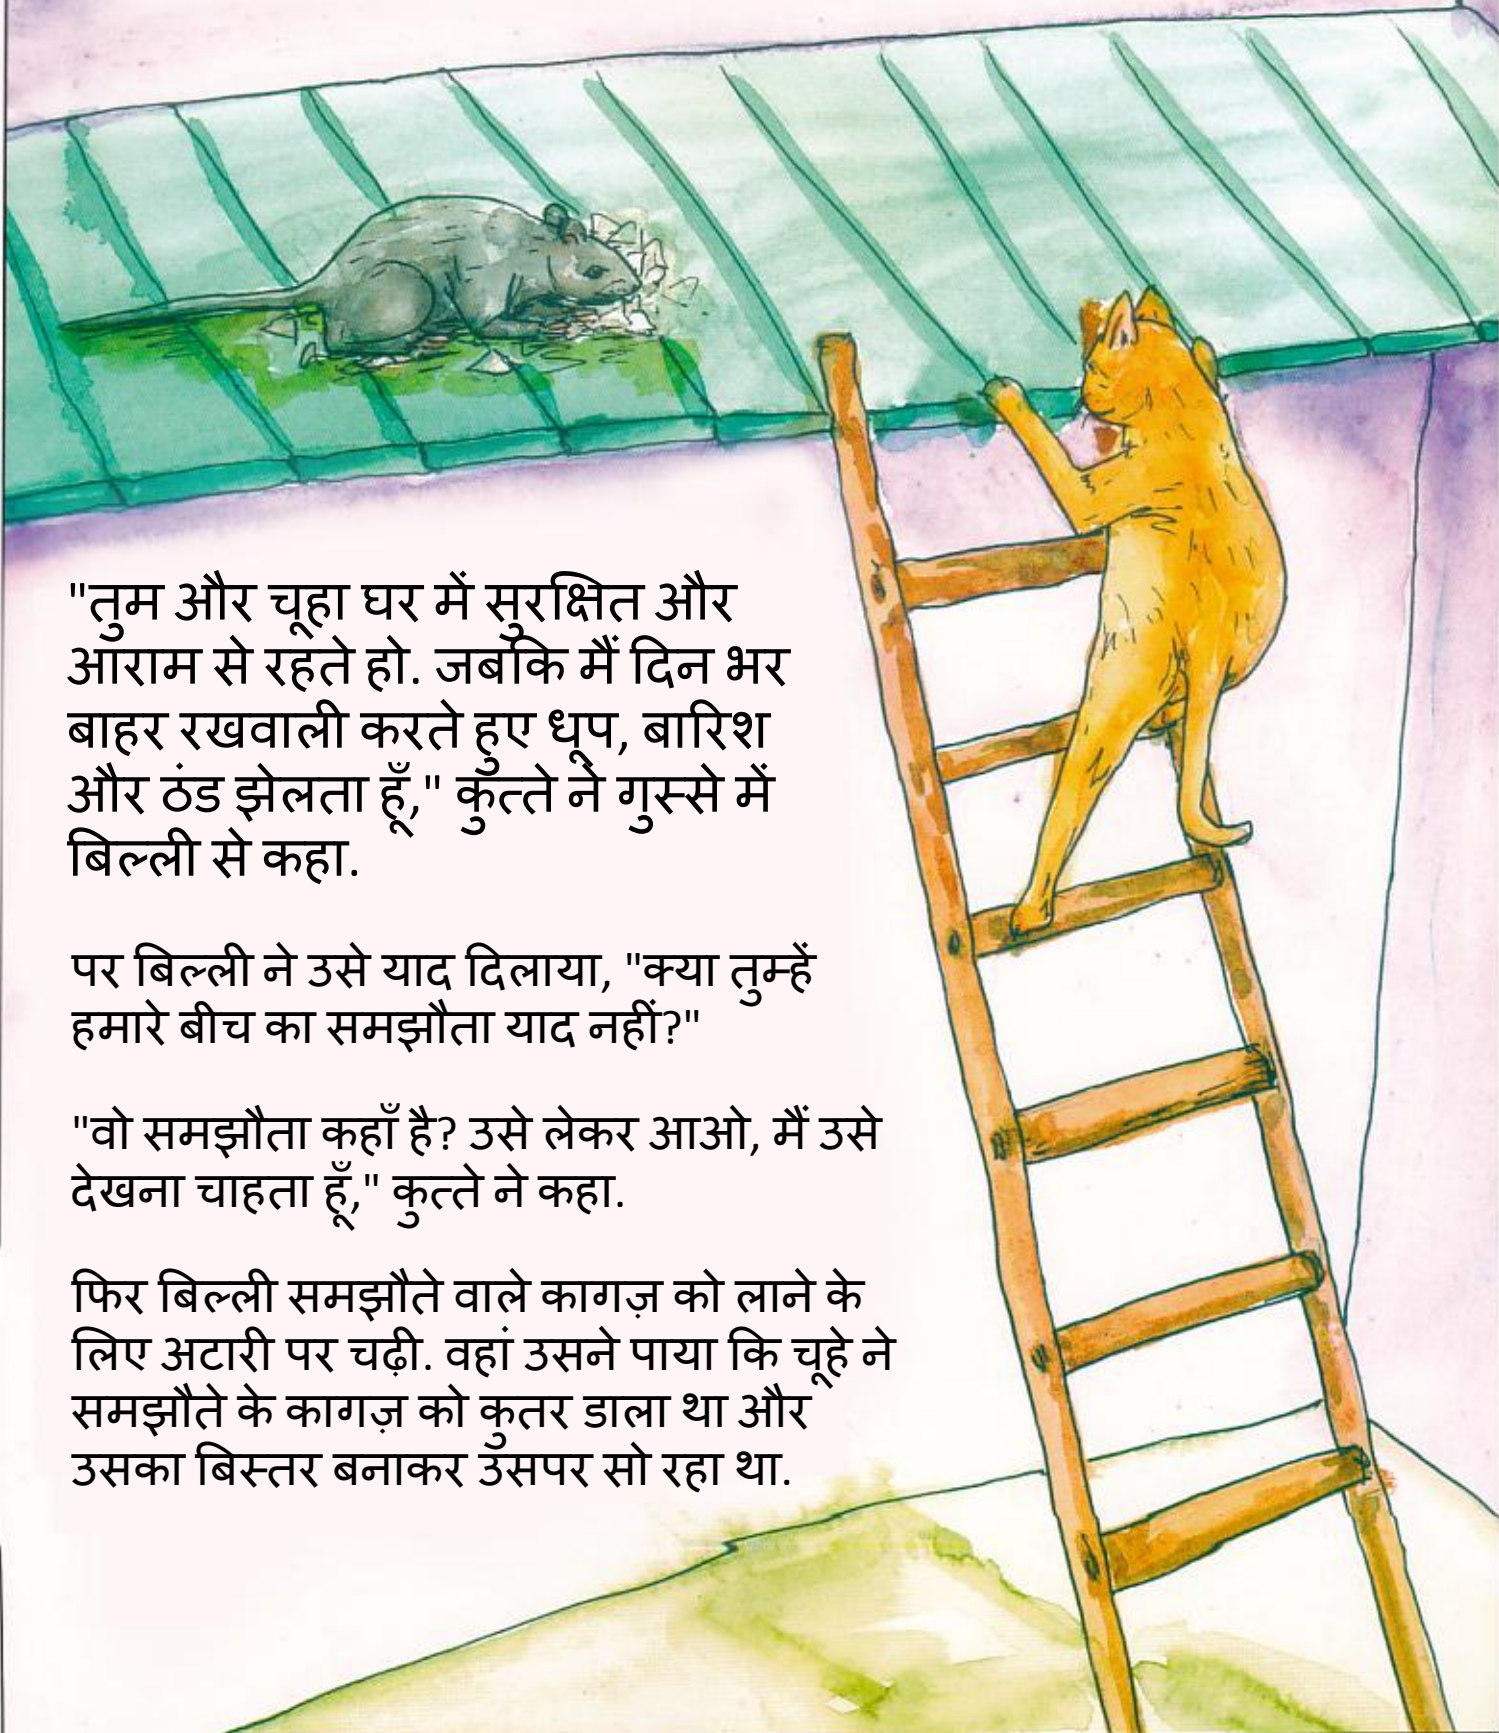 "तुम और चूहा घर में सुरक्षित और
आराम से रहते हो. जबकि मैं दिन भर
बाहर रखवाली करते हुए धूप, बारिश
और ठंड झेलता हूँ," कुत्ते ने गुस्से में
बिल्ली से कहा.
पर बिल्ली ने उसे याद दिलाया, "क्या तुम्हें
हमारे बीच का समझौता याद नहीं?"
"वो समझौता कहाँ है? उसे लेकर आओ, मैं उसे
देखना चाहता हूँ," कुत्ते ने कहा.
फिर बिल्ली समझौते वाले कागज़ को लाने के
लिए अटारी पर चढ़ी. वहां उसने पाया कि चूहे ने
समझौते के कागज़ को कुतर डाला था और
उसका बिस्तर बनाकर उसपर सो रहा था.